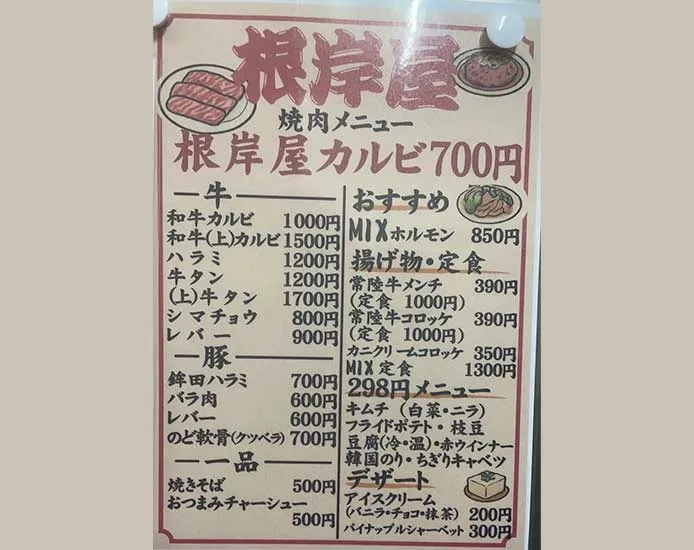 根岸屋
焼肉メニュー
根岸屋カルビ700円
牛
和牛カルビ 1000円
和牛(上)カルビ 1500円
ハラミ 1200円
牛タン 1200円
(上)牛タン 1700円
シマチョウ 800円
レバー 900円
豚
鉾田ハラミ 700円
バラ肉 600円
レバー 600円
のど軟骨(クツベラ) 700円
一品
焼きそば 500円
おつまみチャーシュー
500円
おすすめ
MIXホルモン 850円
揚げ物・定食
常陸牛メンチ 390円
(定食 1000円)
常陸牛コロッケ 390円
(定食 1000円)
カニクリームコロッケ 350円
MIX定食 1300円
298円メニュー
キムチ (白菜・ニラ)
フライドポテト・枝豆
豆腐(冷・温)・赤ウインナー
韓国のり・ちぎりキャベツ
デザート
アイスクリーム
(バニラ・チョコ・抹茶) 200円
パイナップルシャーベット 300円